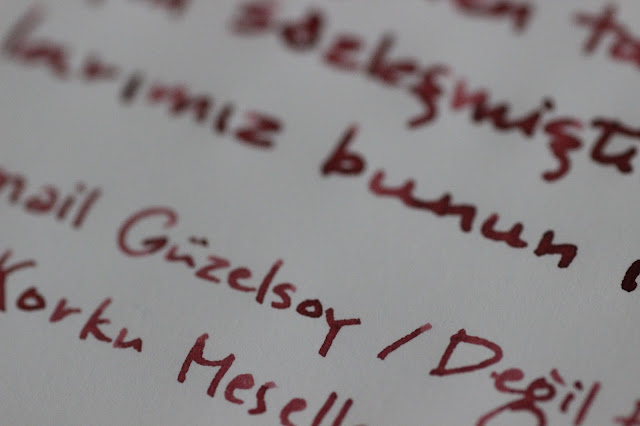 sözleşmişti
larımız bunun
mail Güzelsoy / Değil
Korku Mesell